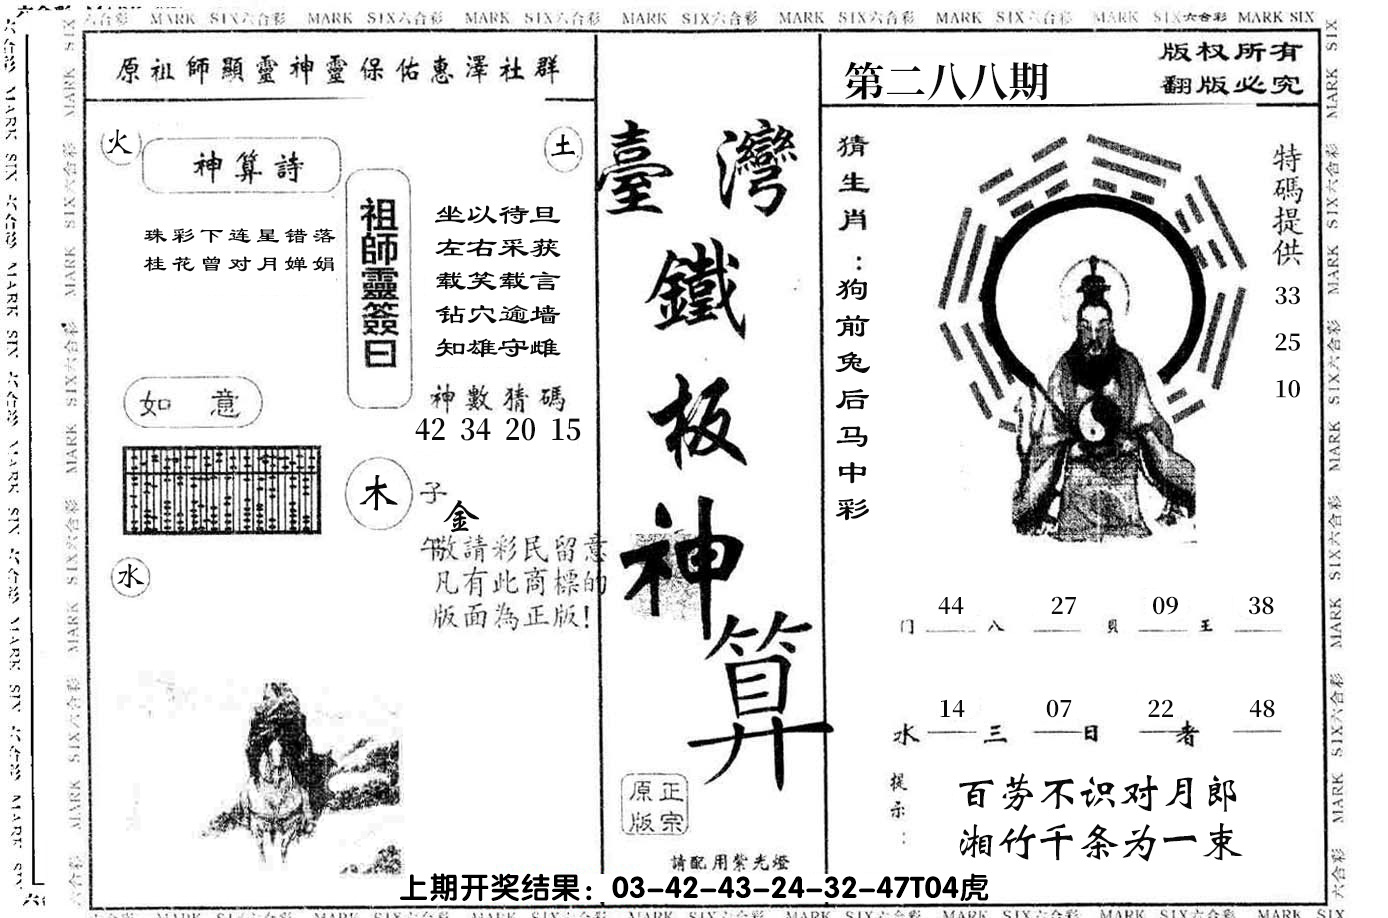 六合彩 MARK SIX六合彩 MARK SIX六合彩 MARK SIX六合彩 MARK SIX六合彩 MARK SIX六合彩 MARK SIX六合彩 MARK SIX六合彩 MARK SIX
原祖師顯靈神靈保佑惠澤社群
火
土
神算詩
珠彩下连星错落
桂花曾对月婵娟
祖師靈簽曰
坐以待旦
左右采获
载笑载言
钻穴逾墙
知雄守雌
神數猜碼
42 34 20 15
如 意
木
子
金
午
敬請彩民留意
凡有此商標的
版面為正版!
水
臺灣
鐵
板
神
算
正宗
原版
請配用紫光燈
第二八八期
版权所有
翻版必究
猜生肖:狗前兔后马中彩
特碼提供
33
25
10
44 27 09 38
门 八 貝 王
14 07 22 48
水 三 日 者
提示:
百劳不识对月郎
湘竹千条为一束
上期开奖结果：03-42-43-24-32-47T04虎